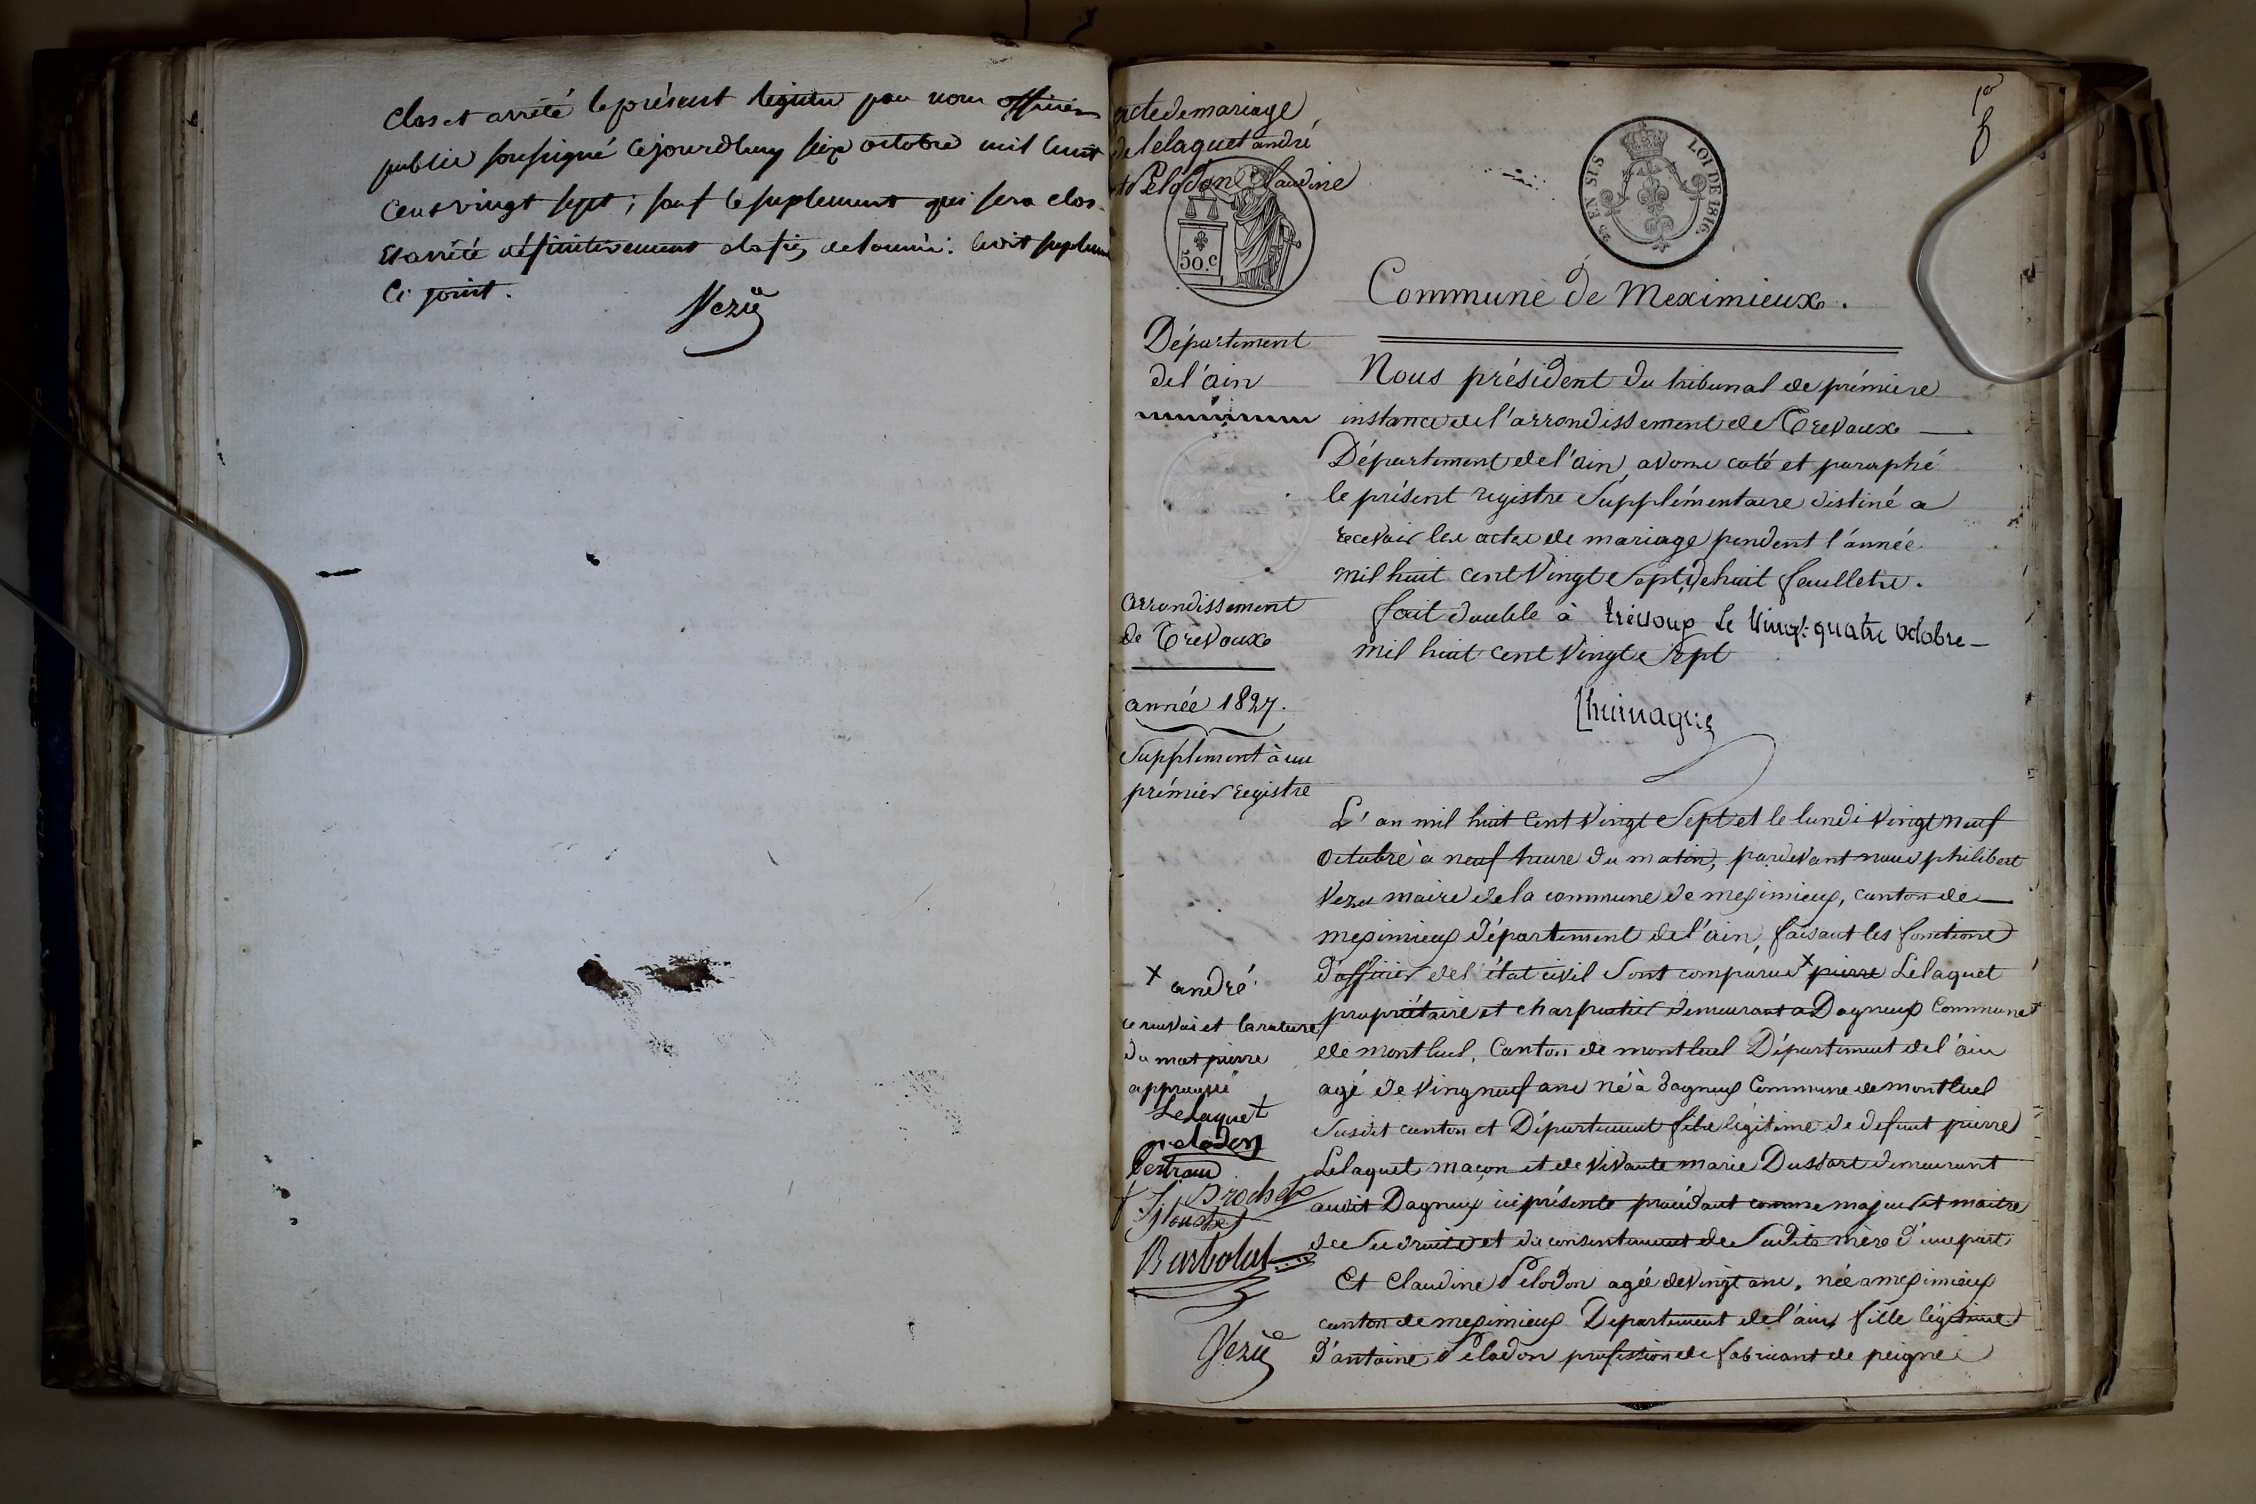 Clos et arrêté le présent régistre par nous officier
public soussigné cejourdhuy seize octobre mil huit
cent vingt sept ; sauf le suplement qui sera clos
et arrêté définitivement alafin de l'année. ledit suplem
ci joint.
Vezu
acte de mariage
de lelaquet andré
et Pelodon Claudine
50.c
EN SUS
LOI DE 1816.
1er
Commune de Meximieux.
Département
de l'ain
Nous président du tribunal de prémiere
instance de l'arrondissement de Trevoux
Département de l'ain, avons coté et paraphé
le présent registre Supplémentaire destiné a
recevoir les actes de mariage pendent l'année
mil huit cent Vingt Sept, de huit feuillets.
fait double à trévoux le vingt quatre octobre
mil huit cent Vingt Sept
arrondissement
de Trevoux
année 1827.
Supplement à un
prémier registre
L'an mil huit cent Vingt Sept et le lundi vingt neuf
octobre à neuf heure du matin, pardevant nous philibert
Vezu maire de la commune de meximieux, canton de
meximieux département de l'ain, faisant les fonctions
d'officier de l'état civil Sont comparus x pierre Lelaquet
propriétaire et charpentier demeurant a Dagneux Commune
de montluel, Canton de montluel Département de l'ain
agé de vingneuf ans né à dagneux Commune de montluel
Susdit canton et Département fils légitime de defunt pierre
Lelaquet maçon et de vivante marie Dussart demeurant
audit Dagneux ici présente procédant comme majeur et maitre
de Ses droits et du consentement de Sadite mère d'une part
Et Claudine Pelodon agée de vingt ans, née a meximieux
canton de meximieux Departement de l'ain, fille légitime
d'antoine Pelodon profession de fabricant de peignes
x andré
ce renvoi et la rature
du mot pierre
approuvé
Lelaquet
pelodon
Brochet
Barbolat
Vezu